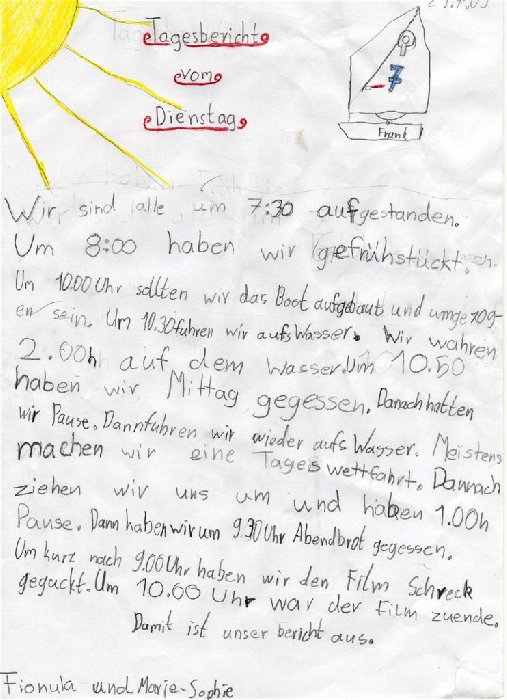 Tagesbericht
vom
Dienstag
7
Frank
Wir sind alle um 7:30 aufgestanden.
Um 8:00 haben wir gefrühstückt.
Um 10.00 Uhr sollten wir das Boot aufgebaut und umgezog-
en sein. Um 10.30 fuhren wir aufs Wasser. Wir wahren
2.00h auf dem Wasser. Um 10.50
haben wir Mittag gegessen. Danach hatten
wir Pause. Dann fuhren wir wieder aufs Wasser. Meistens
machen wir eine Tageswettfahrt. Dannach
ziehen wir uns um und haben 1.00h
Pause. Dann haben wir um 9.30 Uhr Abendbrot gegessen.
Um kurz nach 9.00 Uhr haben wir den Film Schreck
geguckt. Um 10.00 Uhr war der Film zuende.
Damit ist unser bericht aus.
Fionula und Marie-Sophie